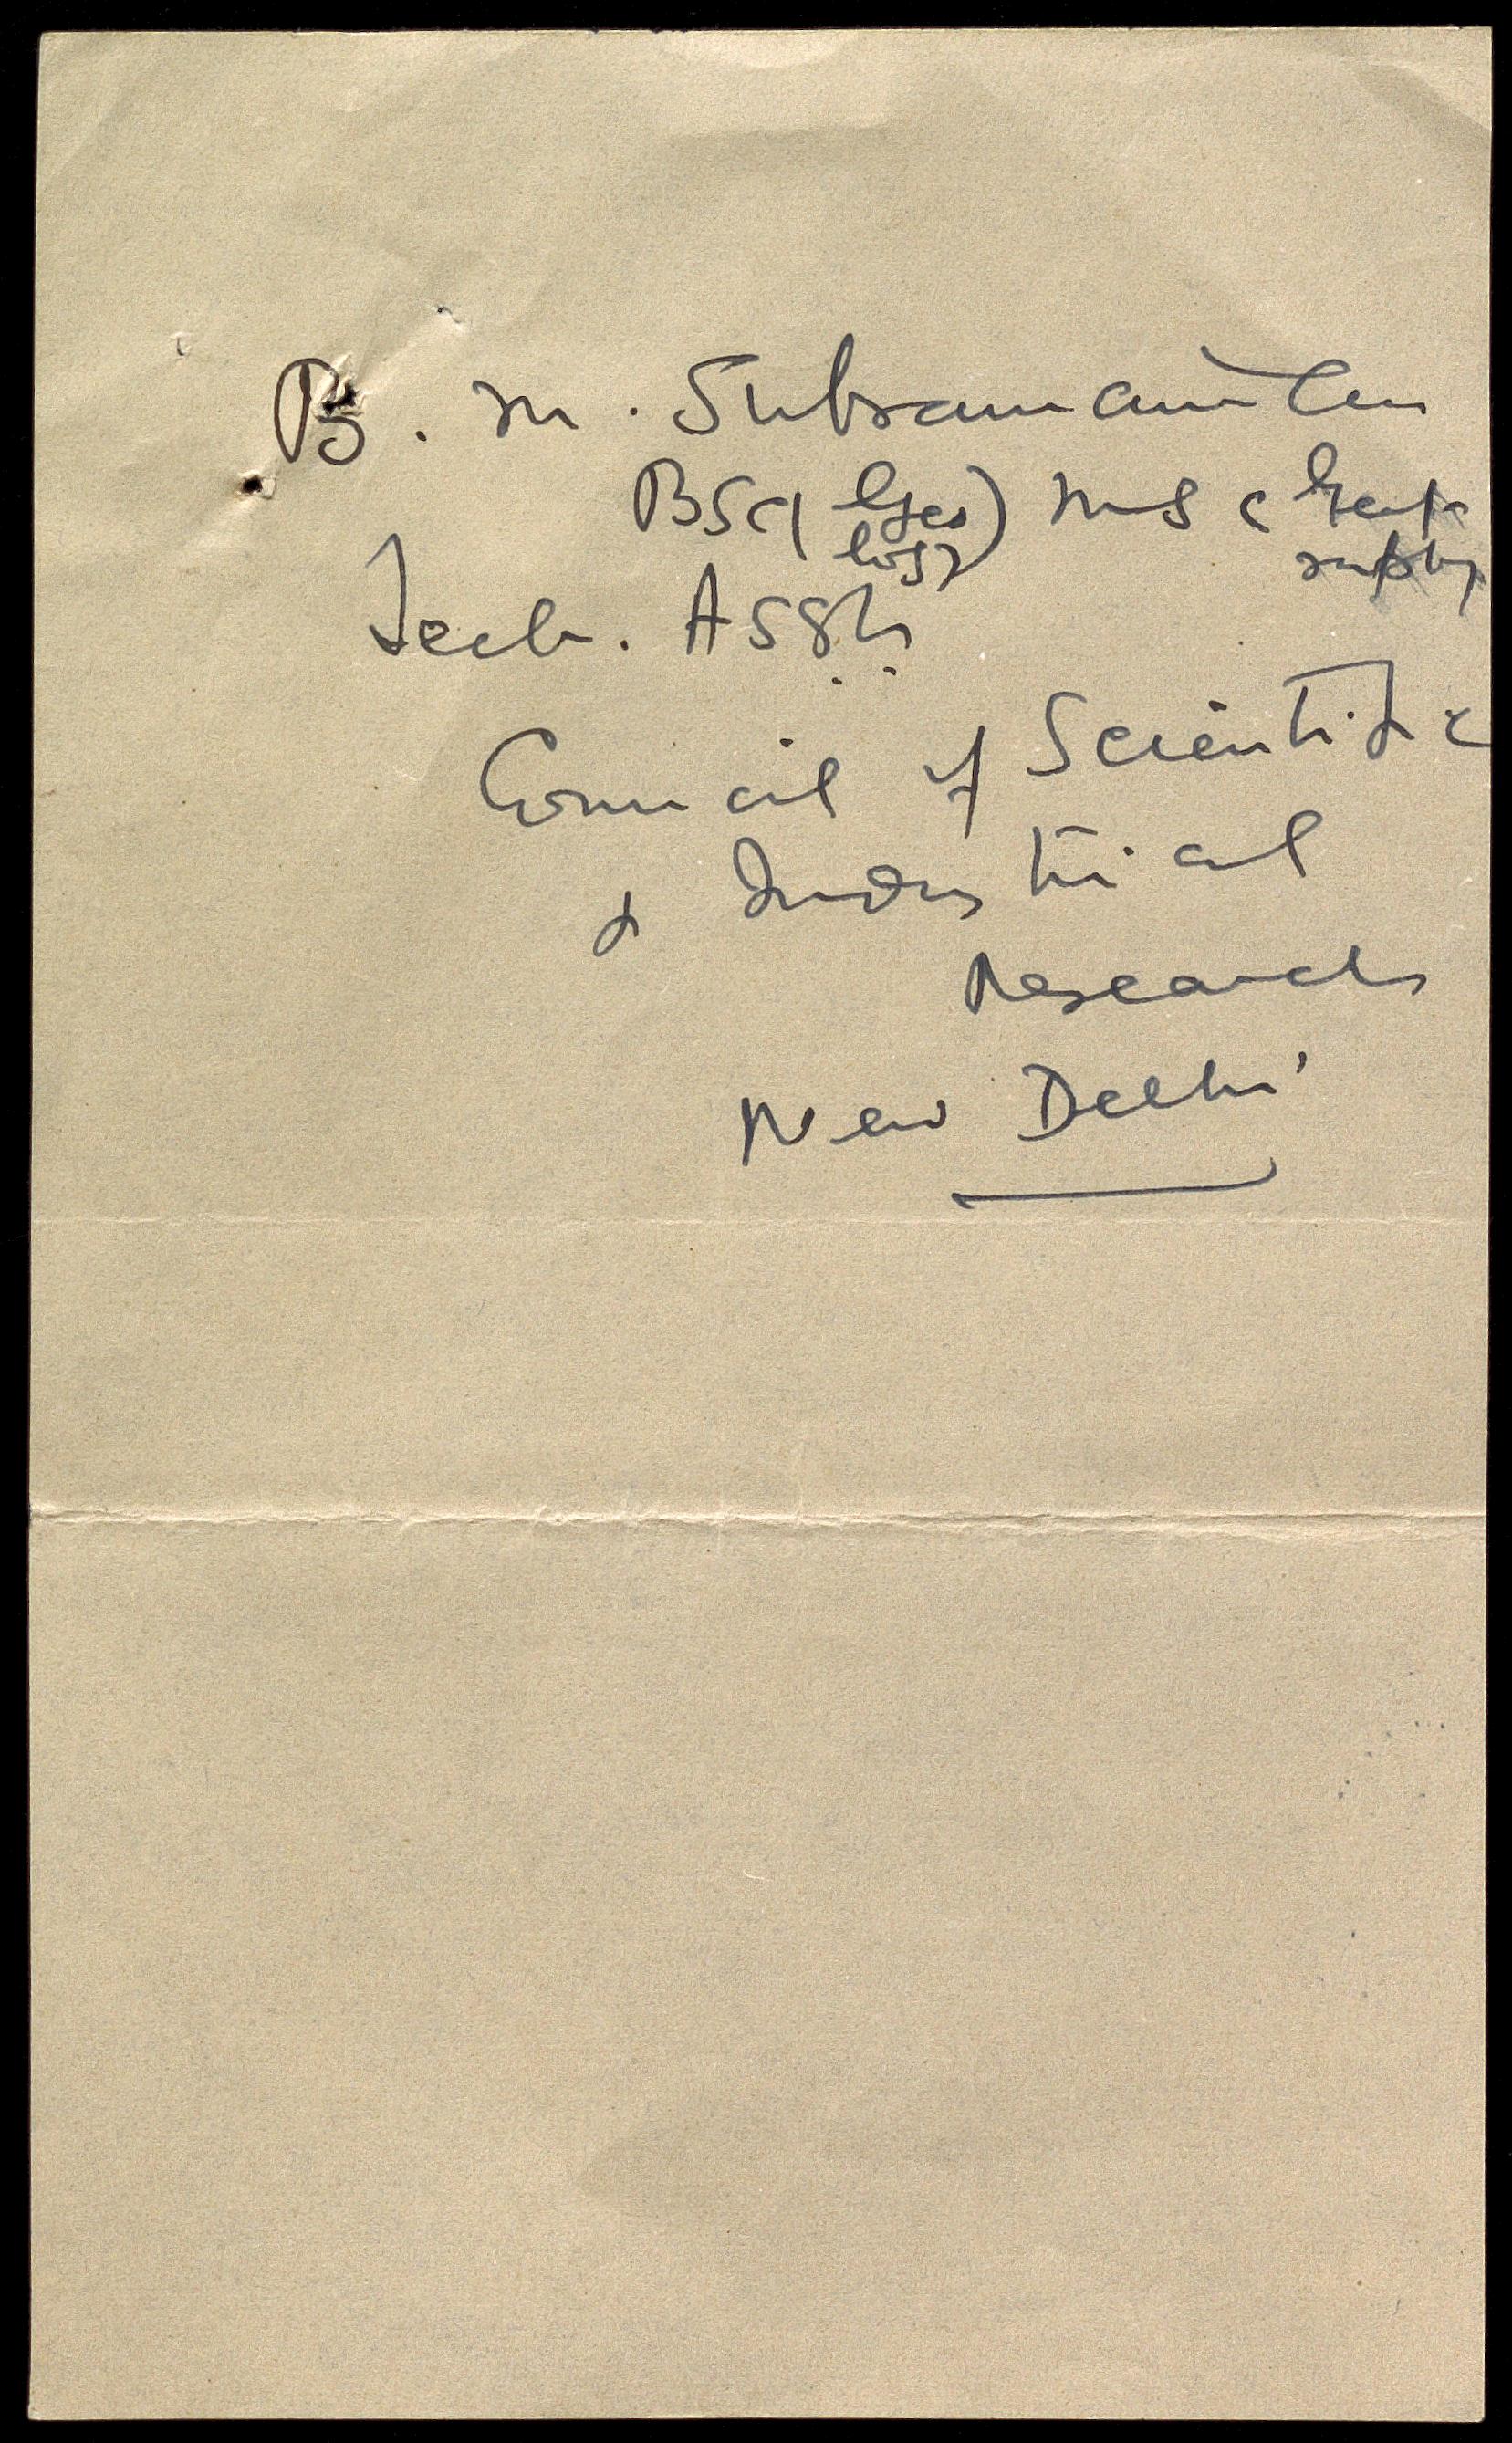 B. M. Subramanian
BSc (Geo
logy) MSc (Geog
raphy
Tech. Asst.
Council of Scientific
& Industrial
Research
New Delhi